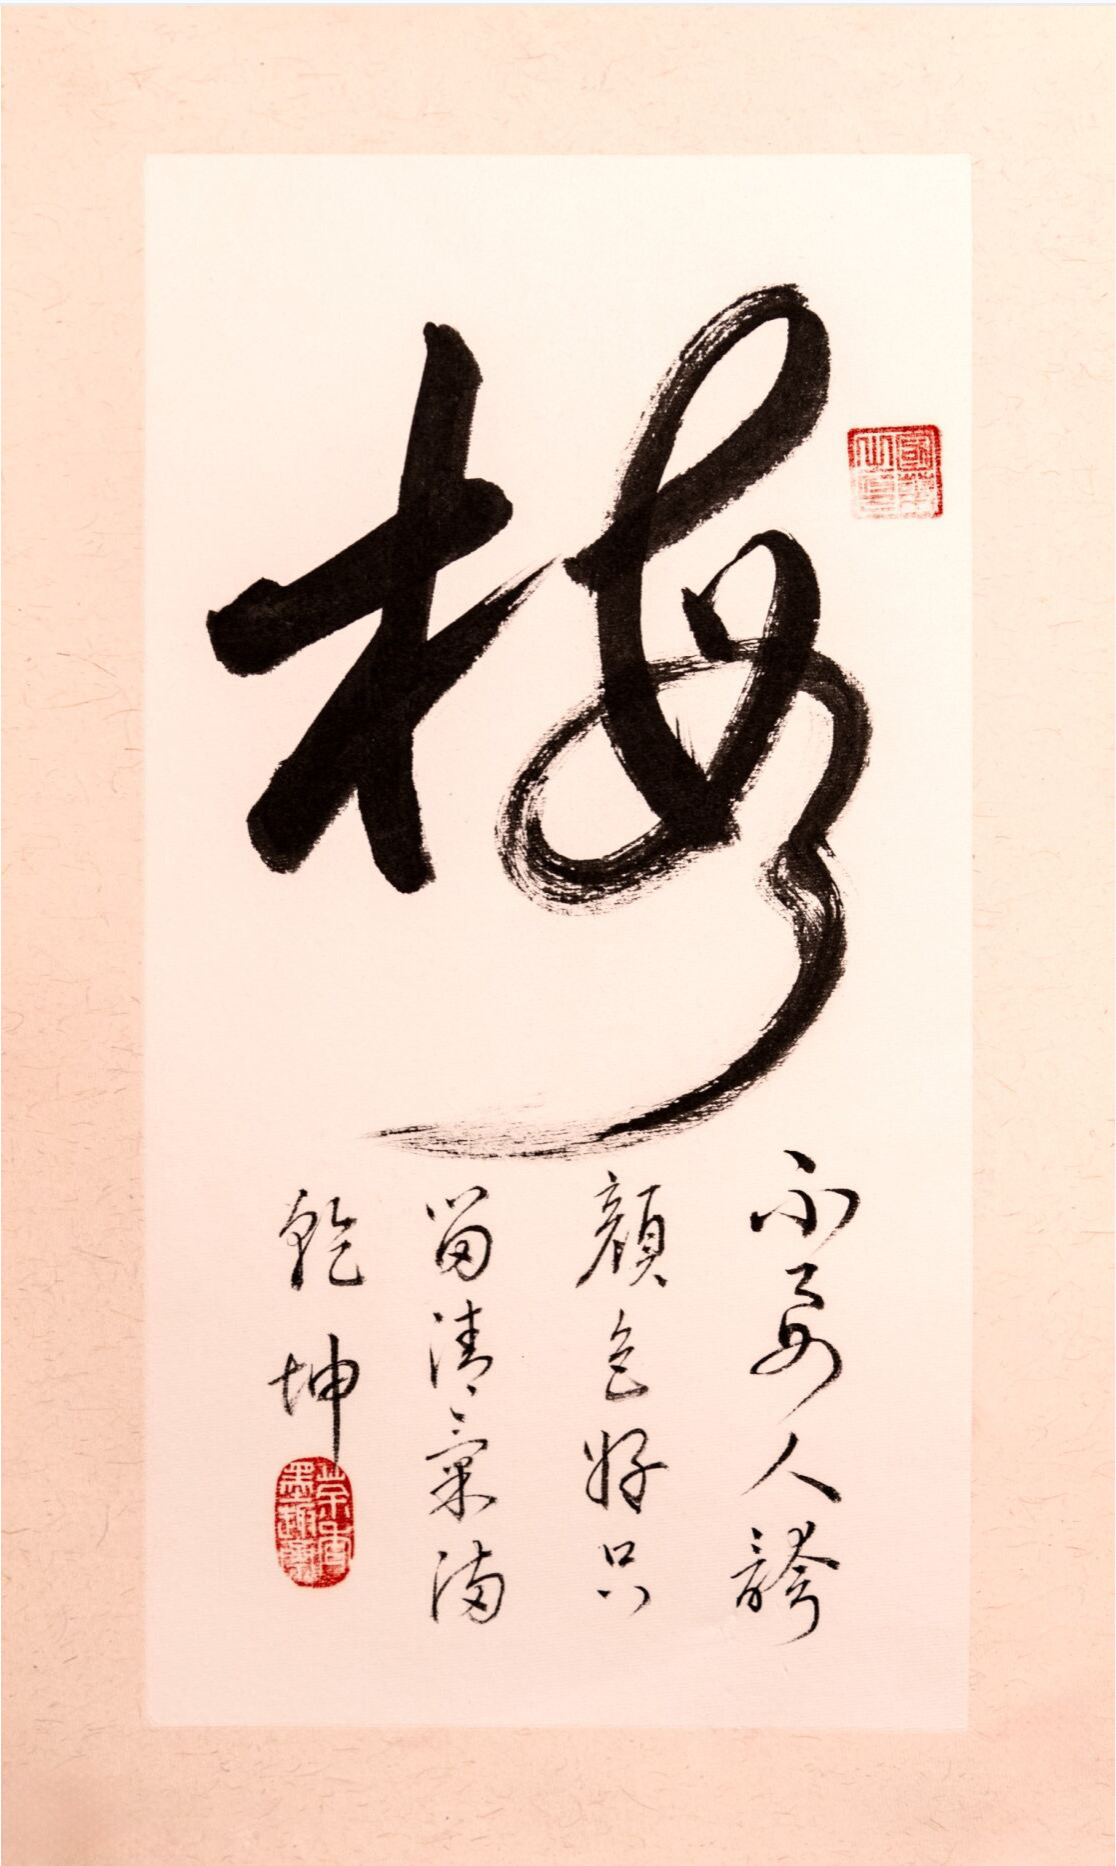 梅
不要人誇
顏色好只
留清氣滿
乾坤